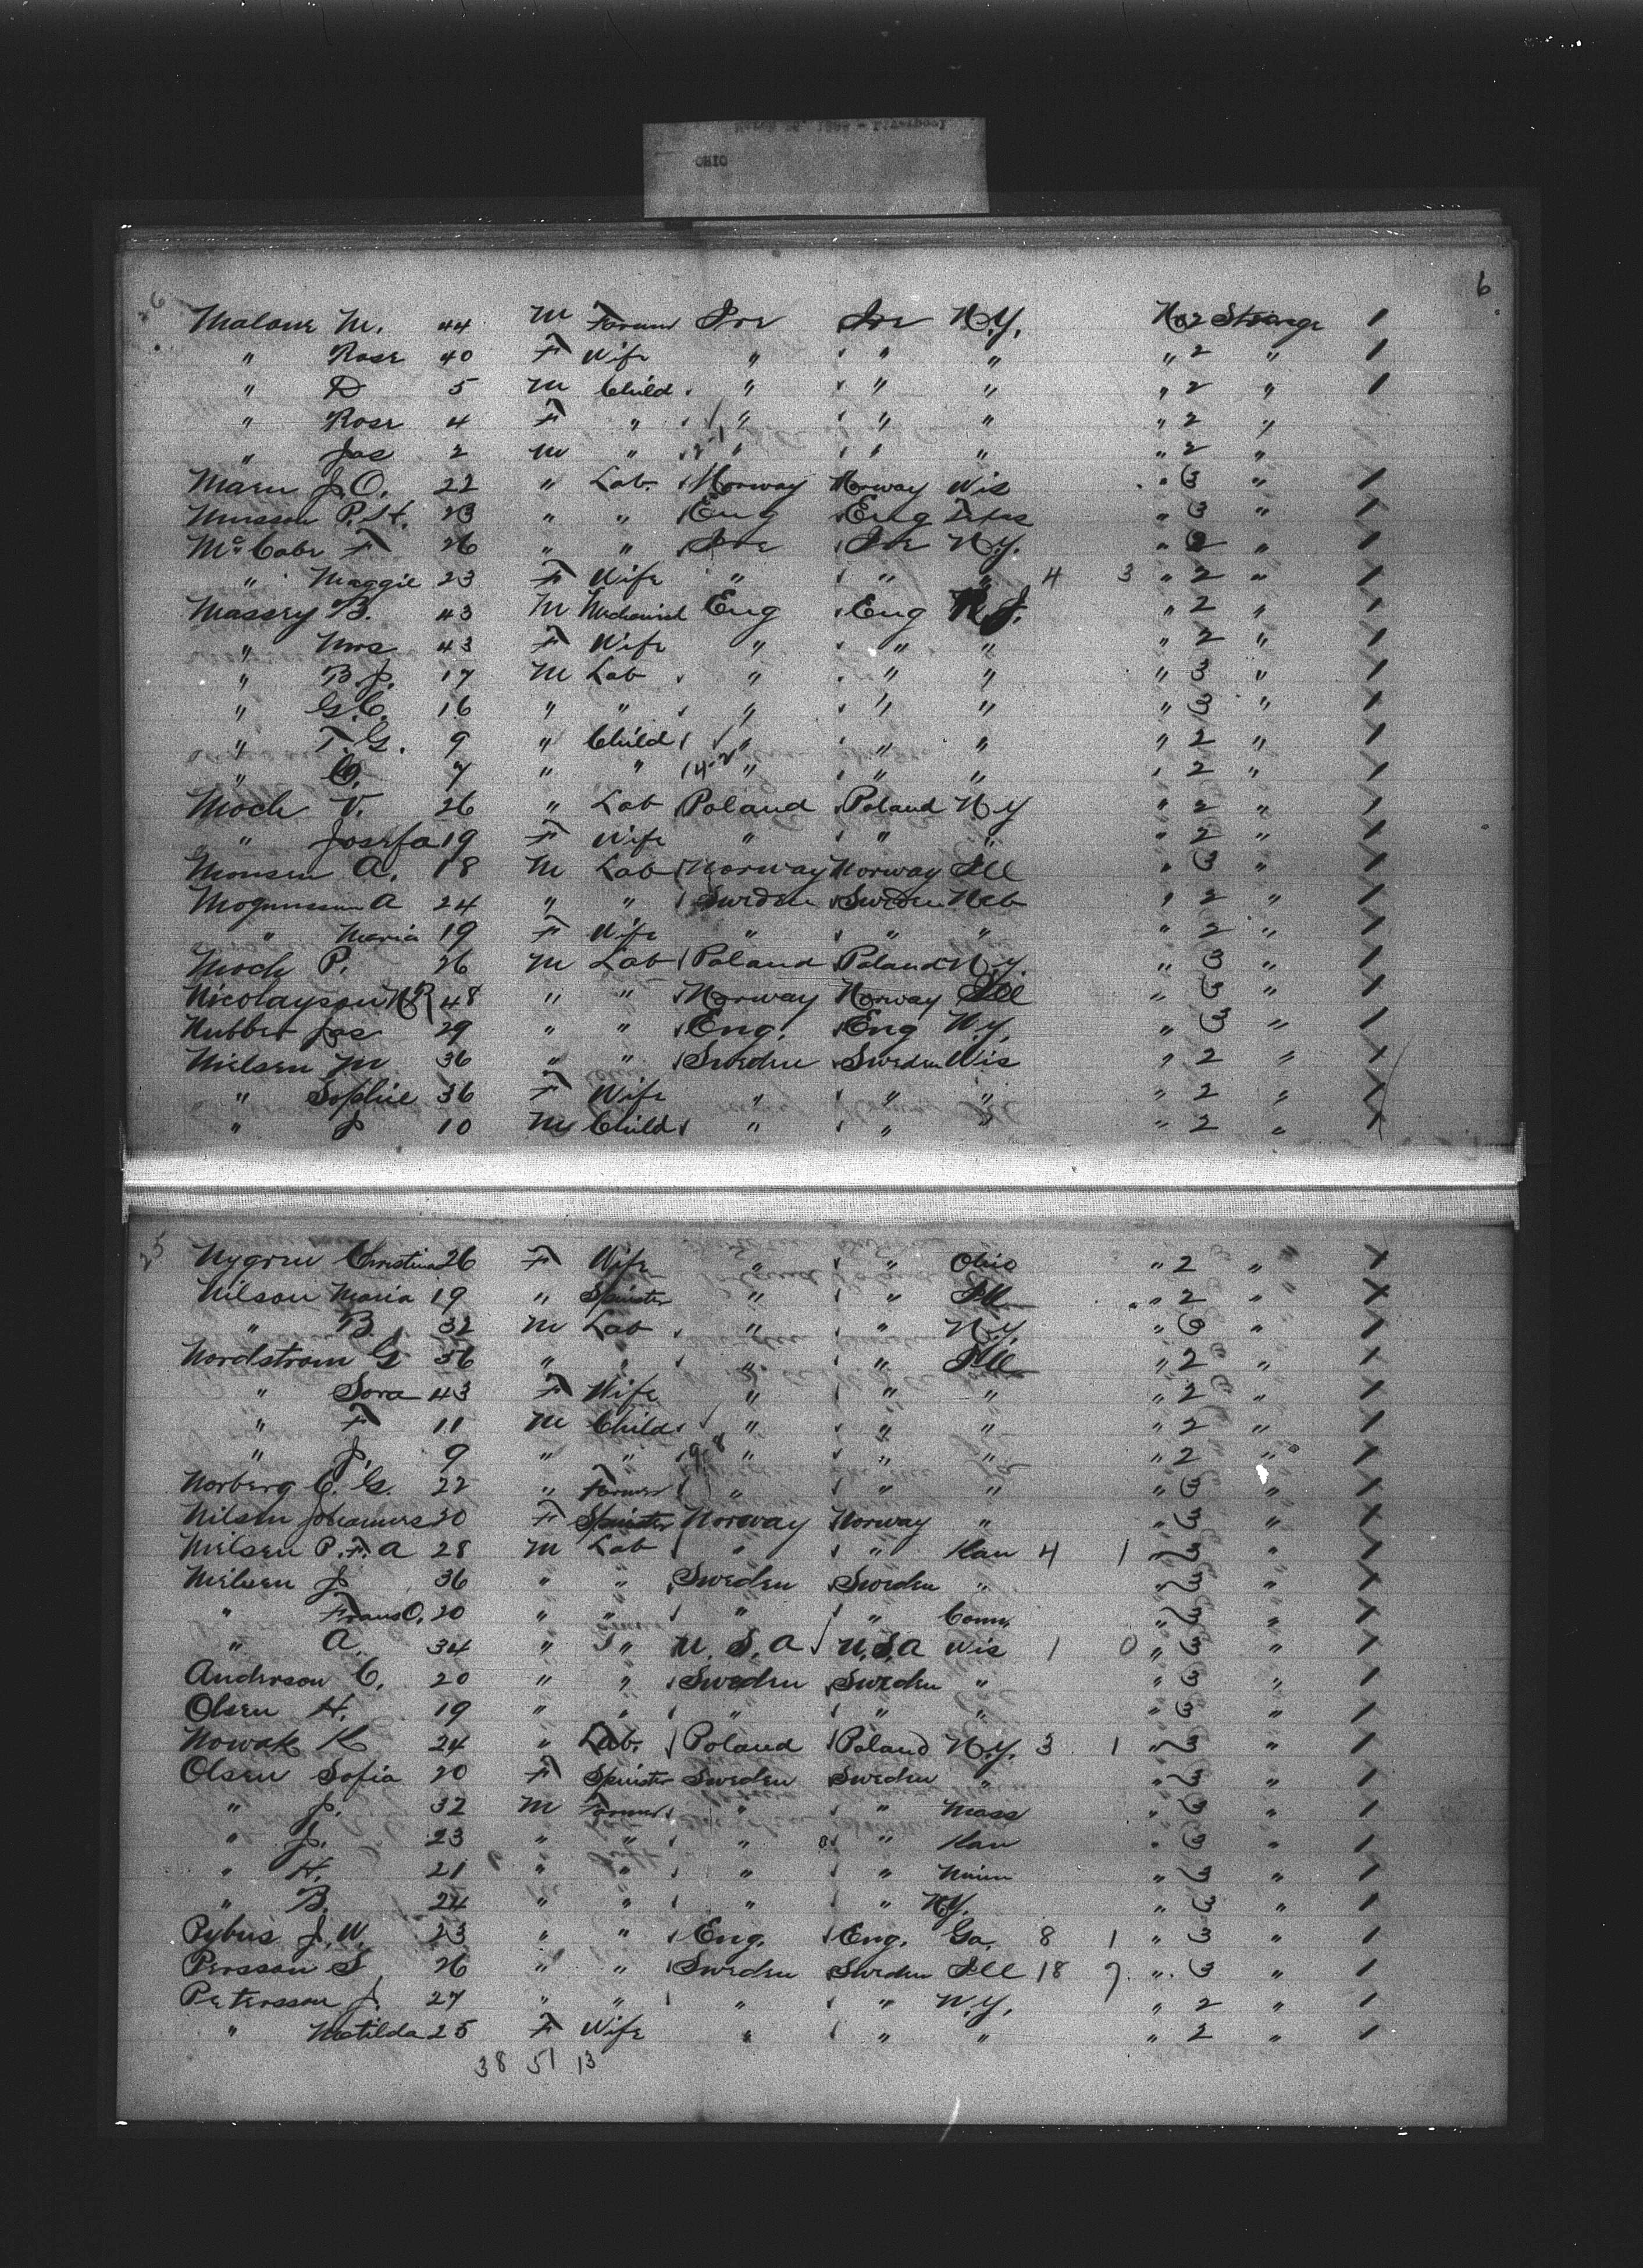 OHIO
6
Malone M. 44 M Farmer Ire Ire N.Y. No 2 Steerage 1
" Rose 40 F Wife " " " " 2 " 1
" D 5 M Child " " " " 2 " 1
" Rose 4 F " " " " " 2 "
" Jas 2 M " " " " " 2 "
J.O. 22 " Lab. Norway Norway Wis " 3 " 1
P.H. 23 " " Eng Eng " 3 " 1
McCabe F 26 " " Ire Ire N.Y. " 2 " 1
" Maggie 23 F Wife " " " 4 3 " 2 " 1
Massey B. 43 M Mechanick Eng Eng N.J. " 2 " 1
" Mrs 43 F Wife " " " " 2 " 1
" B.J. 17 M Lab " " " " 3 " 1
" G.C. 16 " " " " " " 3 " 1
" T.G. 9 " Child " " " " 2 " 1
" 7 " " " " " " 2 " 1
Moch V. 26 " Lab Poland Poland N.Y " 2 " 1
" Josefa 19 F Wife " " " " 2 " 1
Monsen A. 18 M Lab Norway Norway Ill " 3 " 1
Mogunssun A 24 " " Sweden Sweden Neb " 2 " 1
" Maria 19 F Wife " " " " 2 " 1
Moch P. 26 M Lab Poland Poland N.Y. " 3 " 1
Nicolayson 48 " " Norway Norway Ill " 3 " 1
Nubbet Jas 29 " " Eng. Eng N.Y. " 3 " 1
Nielsen M 36 " " Sweden Sweden Wis " 2 " 1
" Sophie 36 F Wife " " " " 2 " 1
" J 10 M Child " " " " 2 " 1
25
Nygren Christina 26 F Wife " " Ohio " 2 " 1
Nilson Maria 19 " Spinster " " Ill " 2 " 1
" B. 32 M Lab " " N.Y. " 3 " 1
Nordstrom G 36 " " " " Ill " 2 " 1
" Sora 43 F Wife " " " " 2 " 1
" F 11 M Child " " " " 2 " 1
" J. 9 " " 9-8 " " " " 2 " 1
Norberg C. G. 22 " Farmer " " " " 3 " 1
Nilsen 20 F Spinster Norway Norway " " 3 " 1
Nielsen P.F.A 28 M Lab " " Kan 4 1 " 3 " 1
Nielsen J 36 " " Sweden Sweden " " 3 " 1
" Frans O. 20 " " " " Conn. " 3 " 1
" A. 34 " " U.S.A U.S.A Wis 1 0 " 3 " 1
Anderson C. 20 " " Sweden Sweden " " 3 " 1
Olsen H. 19 " " " " " " 3 " 1
Nowak K 24 " Lab. Poland Poland N.Y. 3 1 " 3 " 1
Olsen Sofia 20 F Spinster Sweden Sweden " " 3 " 1
" J. 32 M Farmer " " Mass " 3 " 1
" J. 23 " " " " Kan " 3 " 1
" H. 21 " " " " Minn " 3 " 1
" B. 24 " " " " N.Y. " 3 " 1
Pybus J.W. 23 " " Eng. Eng. Ga. 8 1 " 3 " 1
Persson S 26 " " Sweden Sweden Ill 18 7 " 3 " 1
Petersson J. 27 " " " " N.Y. " 2 " 1
" Matilda 25 F Wife " " " " 2 " 1
38 51 13